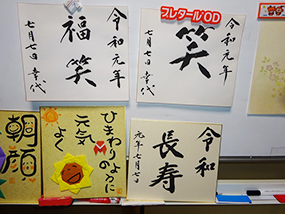 令和元年
福笑
七月七日 幸代
プレタールOD
令和元年
笑
七月七日 幸代
朝顔
ひまわりのように
元気
よく
令和
長寿
元年七月七日